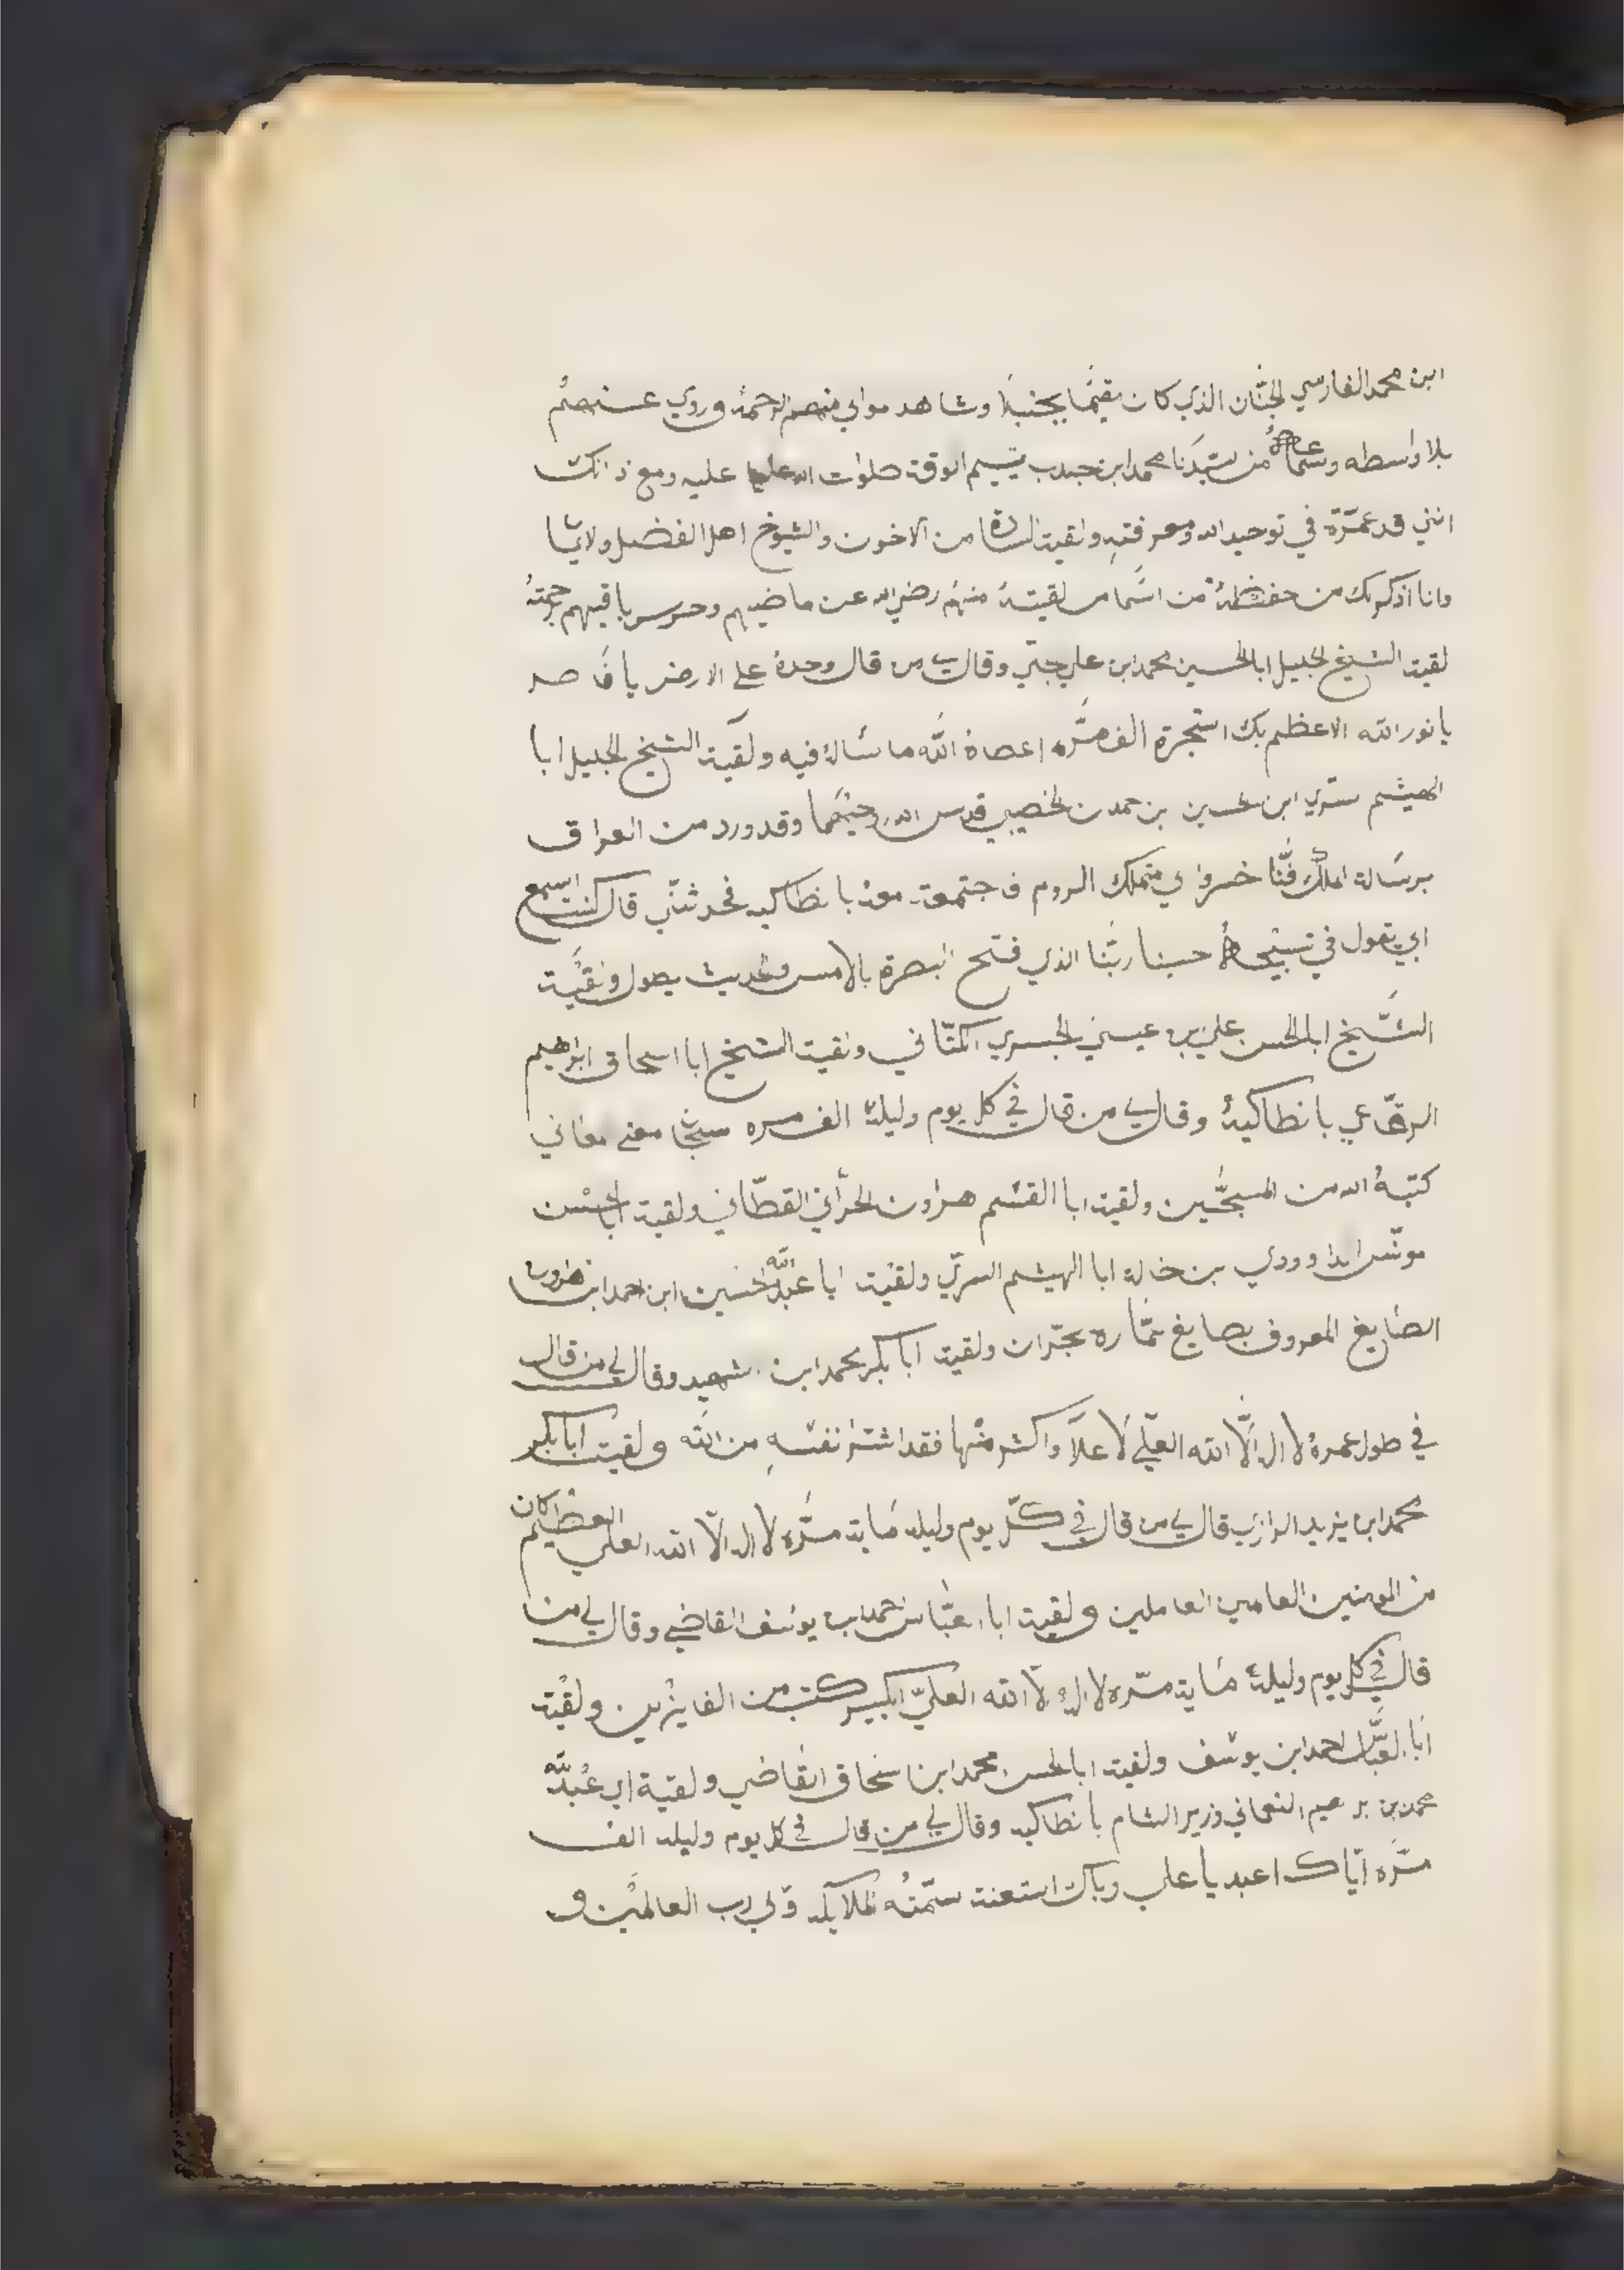 ابن محمد الفارسي الجنّان الذي كان مقيمًا بجنبلا وشاهد موالي منهم الرحمة وروي عنهم
بلا واسطه من سيدنا محمد ابن جندب يتيم الوقت صلوات الله عليه ومع ذالك
انني قد عمّرة في توحيد الله ومعرفته ولقيت السادة من الاخون والشيوخ اهل الفضل
وانا اذكر لك من حفظة من اسما من لقيتهُ منهم رضي الله عن ماضيهم وحرس باقيهم برحمته
لقيت الشيخ الجليل ابا الحسين محمد ابن علي جلّي وقال لي من قال وحدهُ على الارض يا قاصد
يا نور الله الاعظم بك استجرة الف مرّه اعطاهُ الله ما سالهُ فيه ولقيت الشيخ الجليل ابا
الهيثم سري ابن الحسين بن حمدن الخصيبي قدس الله روحيهما وقد ورد من العراق
برسالة الملك فنّا خسروا لي متملك الروم فاجتمعت معه بانطاكيه فحدثني قال كنت اسمع
ابي يقول في تسبيحهُ حسبنا ربّنا الذي فتح البصرة بالامس والحديث يطول ولقيت
الشيخ ابا الحسن علي بن عيسي الجسري الكتّاني ولقيت الشيخ ابا اسحاق ابراهيم
الرقاعي بانطاكيهُ وقال لي من قال في كل يوم وليلهُ الف مره سبحان معنى معاني
كتبهُ الله من المسبحّين ولقيت ابا القسم هراون الحرّاني القطّاني ولقيت ابا الحسن
موسى الداوودي بن خالة ابا الهيثم السرّي ولقيت ابا عبد الله الحسين ابن احمد ابن
الصايغ المعروف بصايغ بحرّان ولقيت ابا بكر محمد ابن شهيد وقال لي من قال
في طول عمرهُ لا اله الّا الله العلي لا علآ واكثر منها فقد اشترا نفسه من الله ولقيت ابا بكر
محمد ابن يزيد الرازي قال لي من قال في كلّ يوم وليله مايت مرّه لا اله الّا الله العلي العظيم كان
من المومنين العاملين ولقيت ابا العبّاس احمد ابن يوسف القاضي وقال لي من
قال في كل يوم وليلهُ مايت مرّه لا اله الّا الله العليّ الكبير كتب من الفايزين ولقيت
ابا العبّاس احمد ابن يوسف ولقيت ابا الحسن محمد ابن اسحاق القاضي ولقية ابي عبد الله
محمد بن برهيم النعماني وزير الشام بانطاكيه وقال لي من قال في كل يوم وليله الف
مرّه ايّاك اعبد يا علي وياك استعنت سمّتهُ الملايكه ولي رب العالمين و